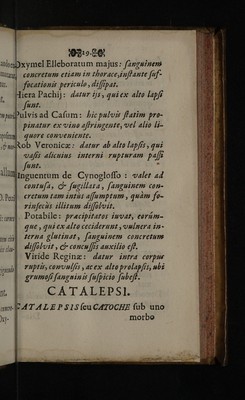 19.
Oxymel Elleboratum majus: sanguinem
concretum etiam in thorace, instante suf-
focationis periculo, dissipat.
Hiera Pachij: datur ijs, qui ex alto lapsi
sunt.
Pulvis ad Casum: hic pulvis statim pro-
pinatur ex vino astringente, vel alio li-
quore conveniente.
Rob Veronicæ: datur ab alto lapsis, qui
vasis alicuius interni rupturam passi
sunt.
Unguentum de Cynoglosso: valet ad
contusa, & sugillata, sanguinem con-
cretum tam intùs assumptum, quàm fo-
rinsecùs illitum dissolvit.
Potabile: præcipitatos iuvat, eorúm-
que, qui ex alto ceciderunt, vulnera in-
terna glutinat, sanguinem concretum
dissolvit, & concussis auxilio est.
Viride Reginæ: datur intra corpus
ruptis, convulsis, ac ex alto prolapsis, ubi
grumosi sanguinis suspicio subest.
CATALEPSI.
CATALEPSIS seu CATOCHE sub uno
morbo